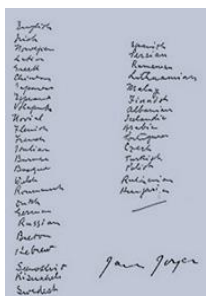 English
Irish
Norwegian
Latin
Greek
Chinese
Japanese
Esperanto
Volapuk
Novial
Flemish
French
Italian
Burmese
Basque
Welsh
Roumansh
Dutch
German
Russian
Breton
Hebrew
Sanskrit
Kisuaheli
Swedish
Spanish
Persian
Rumanian
Lithuanian
Malay
Finnish
Albanian
Icelandic
Arabic
Portuguese
Czech
Turkish
Polish
Ruthenian
Hungarian
James Joyce